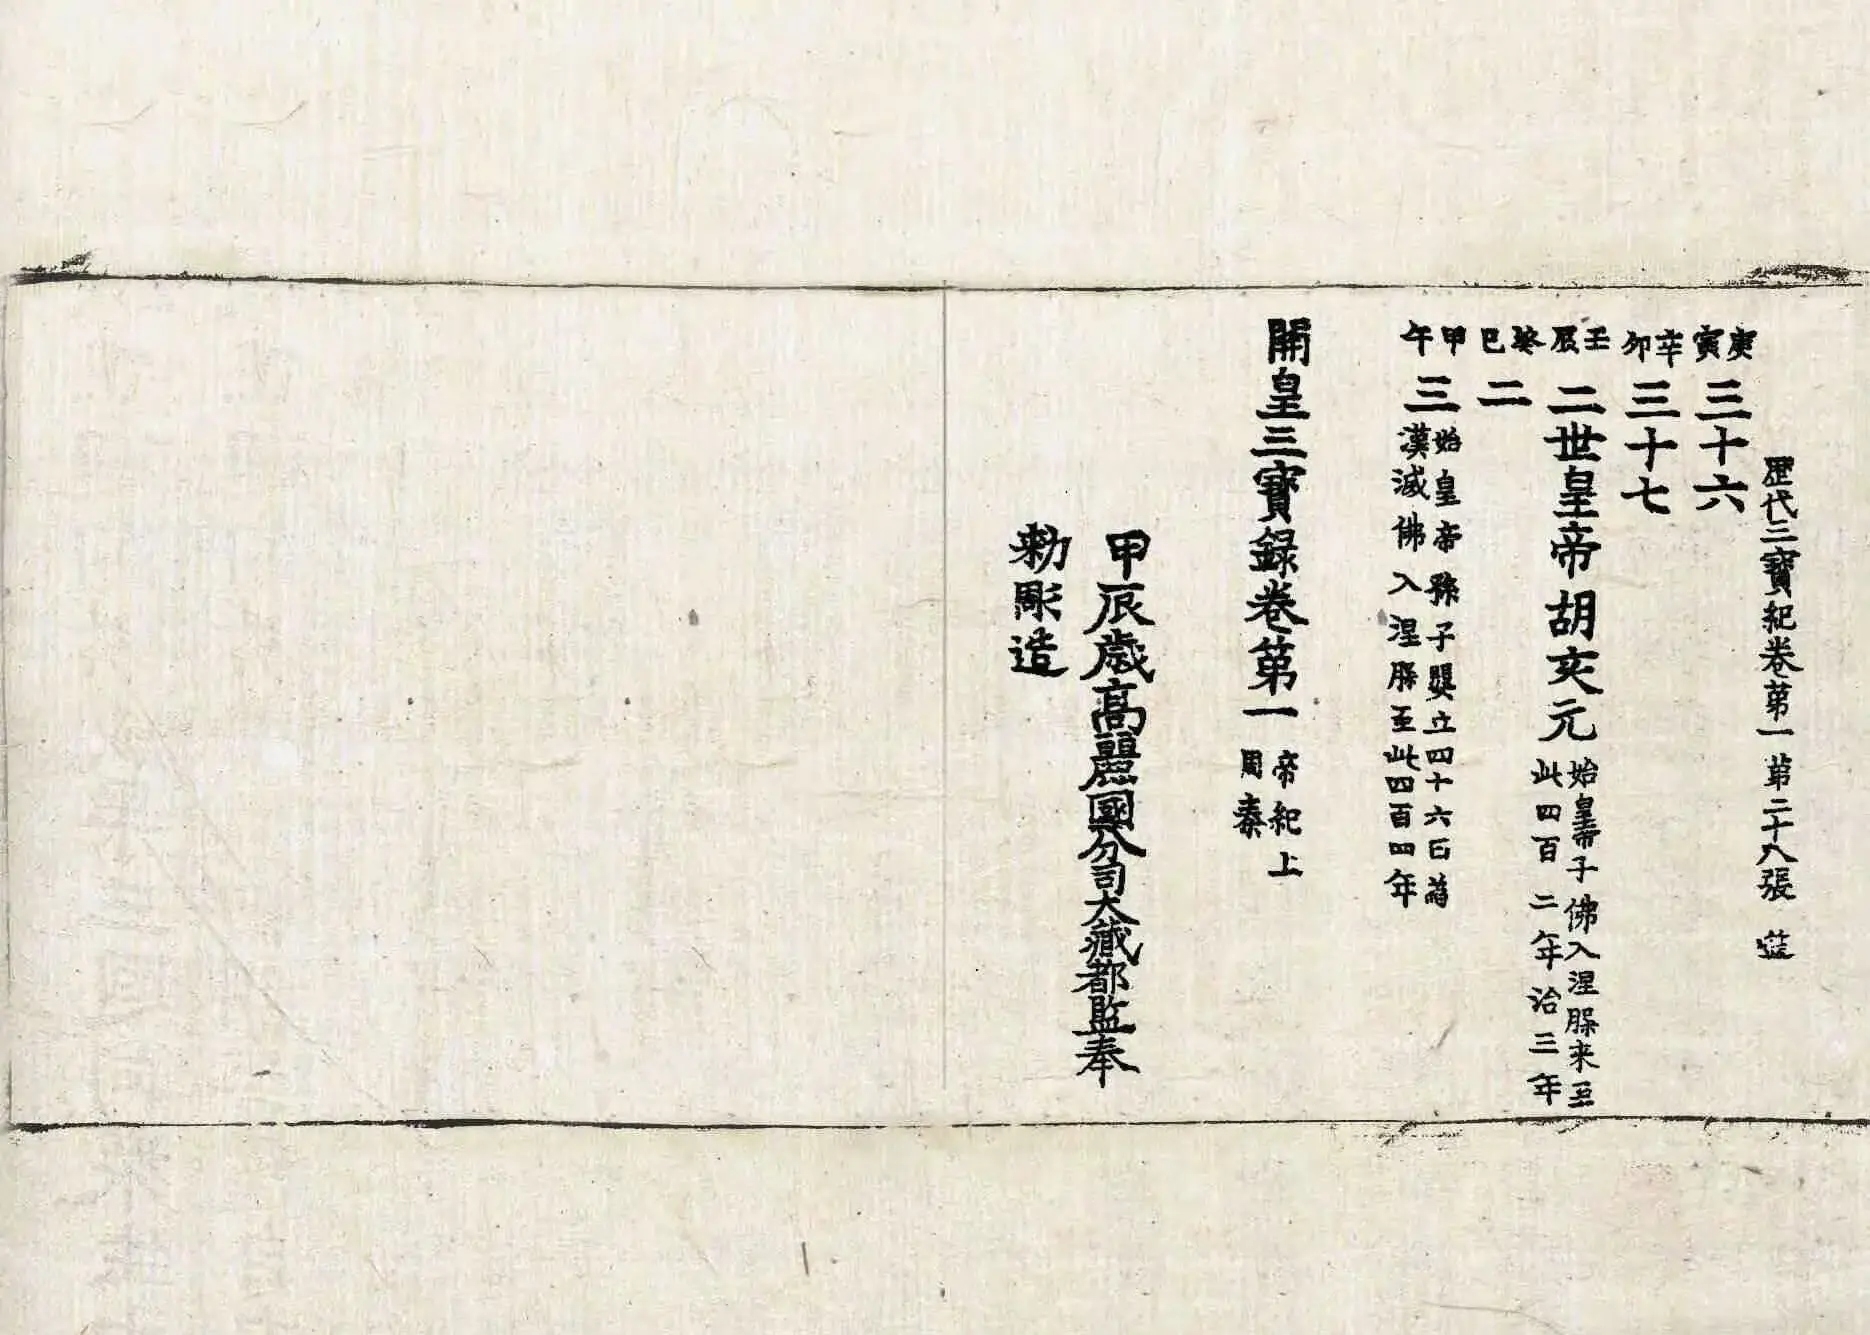 歷代三寶紀卷第一 第二十八張 藍
庚寅 三十六
辛卯 三十七
壬辰 二世皇帝胡亥元 始皇帝子佛入涅槃来至
此四百二年治三年
癸巳 二
甲午 三 始皇帝孫子嬰立四十六日為
漢滅佛入涅槃至此四百四年
開皇三寶録卷第一 帝紀上
周秦
甲辰歳高麗國分司大藏都監奉
勑彫造